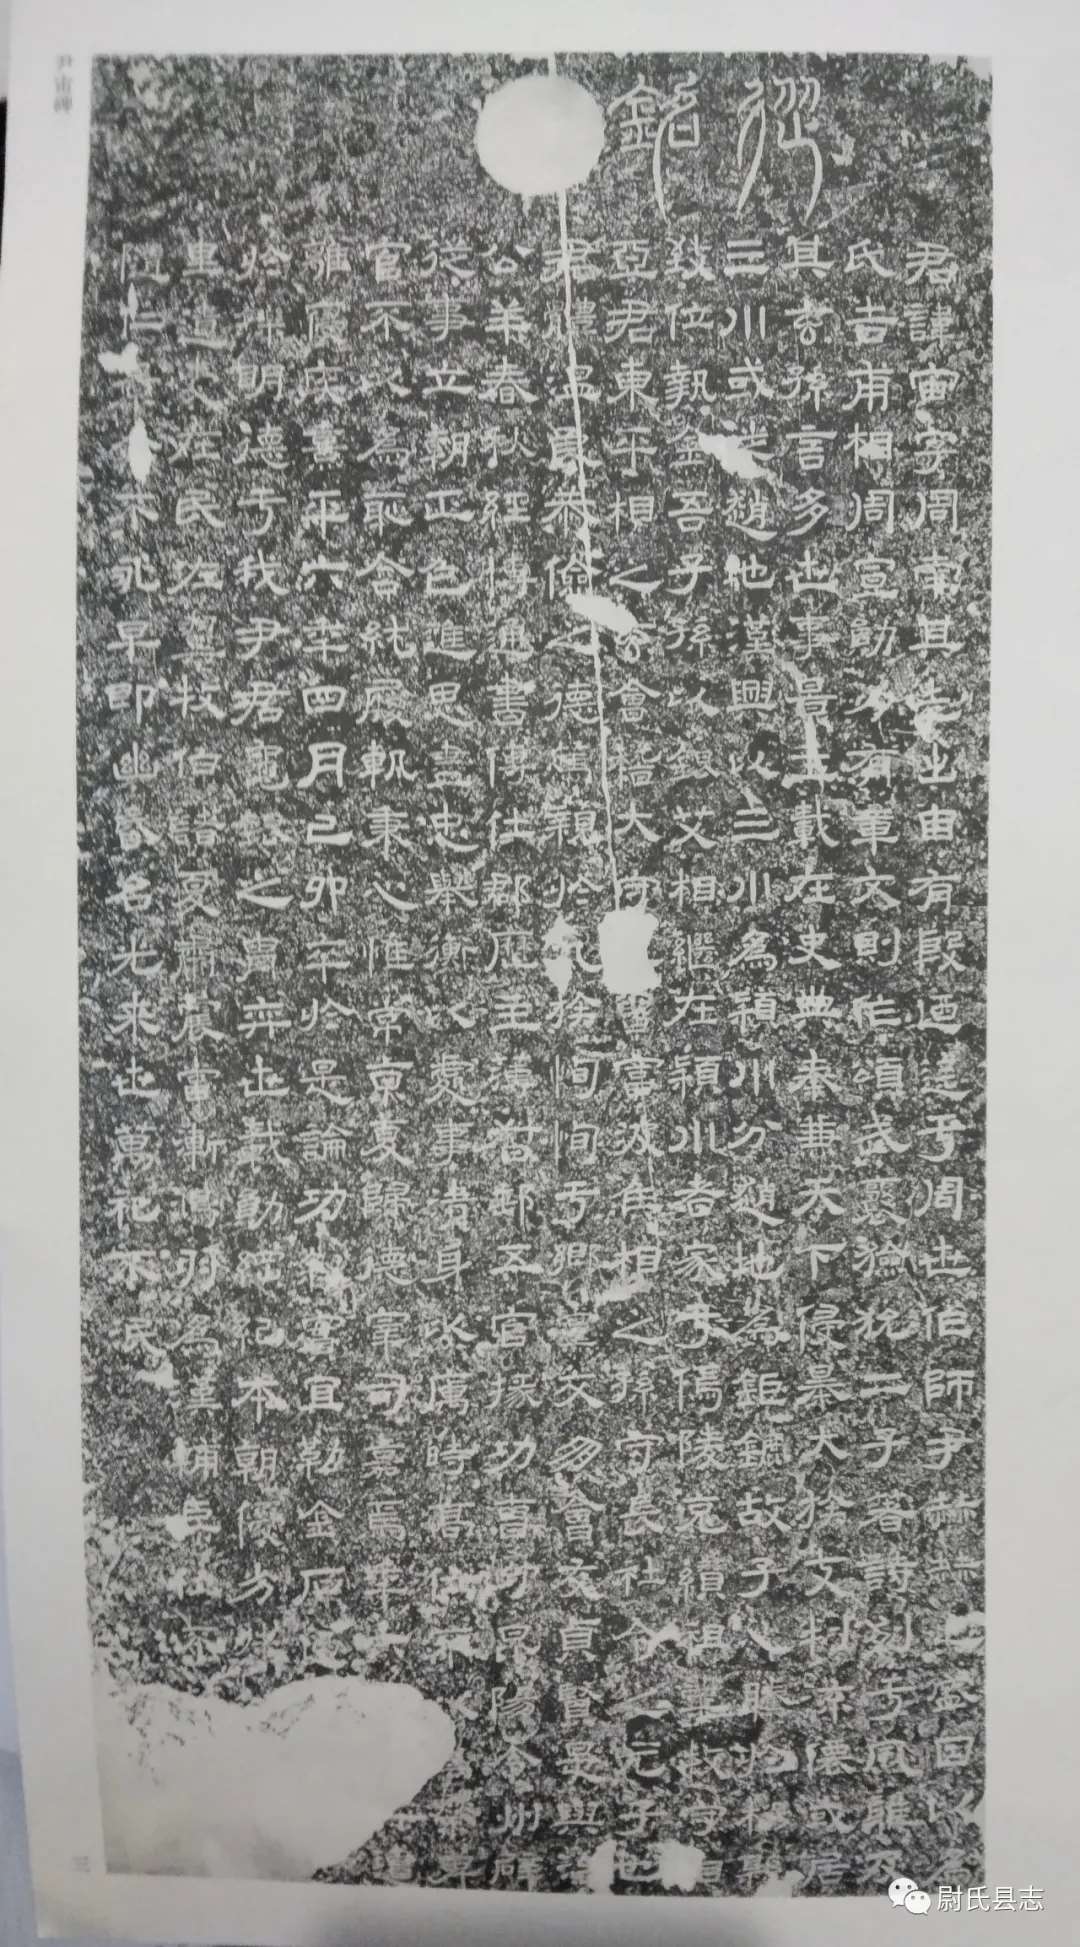 尹宙碑
從銘
君諱宙字周南其先出自有殷迺遷于周世作師尹赫
氏吉甫相周宣勛力有章文則作頌武襄獫狁二子著詩列于風雅及
其玄孫言多世事景王載在史典秦兼天下侵暴大族支判流僊或居
三川或徙趙地漢興以三川為潁川分趙地為鉅鹿故子心騰於楊縣
致位執金吾子孫以銀艾相繼在潁川者家于傿陵克纘祖業牧守相
亞君東平相之玄會稽大守之曾富波侯相之孫守長社令之元子也
君體溫良恭儉之德篤親於九族恂恂于鄉黨交朋會友貞賢是與治
公羊春秋經博通書傳仕郡歷主簿督郵五官掾功曹守昆陽令州辟
從事立朝正色進思盡忠舉衡以處事清身以厲時高位不
官不以為恥含純履軌秉心惟常京夏歸德宰司嘉焉年六
遭
離寖疾熹平六年四月己卯卒於是論功敘實宜勒金石
於鑠明德于我尹君龜銀之胄弈世載勛綱紀本朝優劣
重遺美在民左翼牧伯諸夏肅震當漸鴻羽為
位不
命不永早即幽昏名光來世萬祀不泯
三
尉氏县志